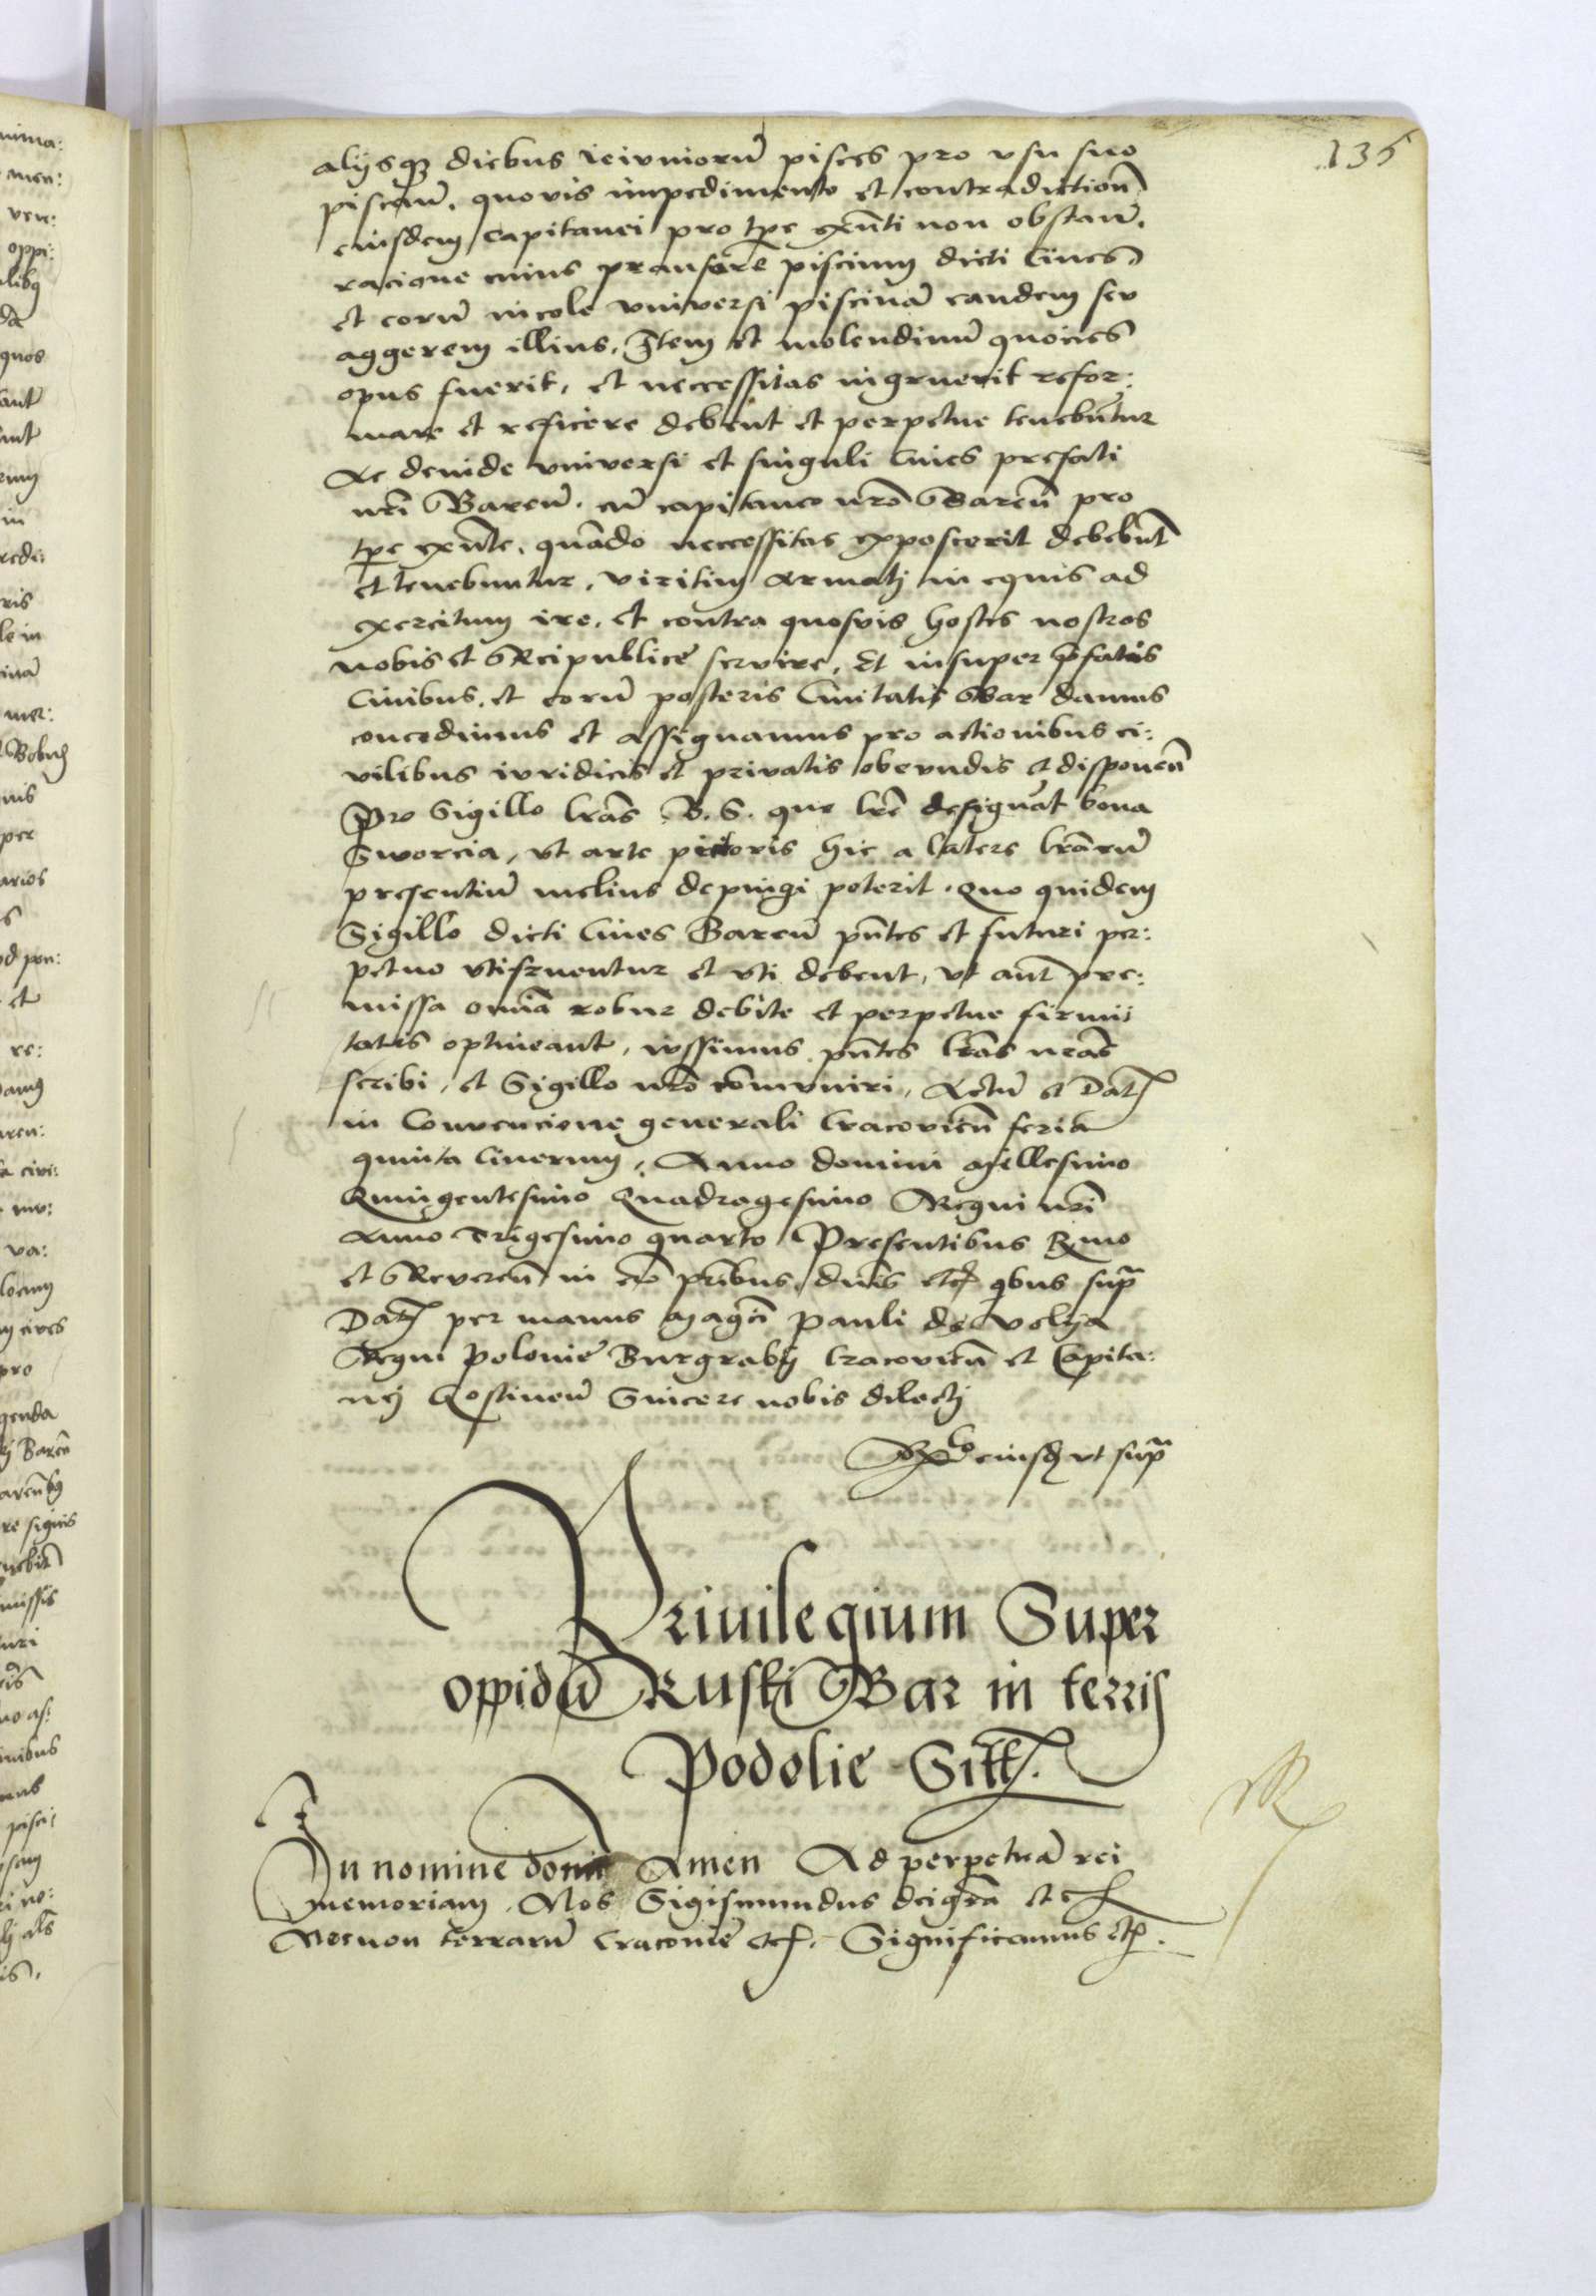 135
alijsqʒ diebus ieiuniorū pisces pro vsu suo
piscañ. quovis impedimento et contradictioñ
eiusdem capitanei pro tp̄e exñti non obstañ.
racione cuius piscium dicti Ciues
et eorū incole vniversi piscinā eandem seu
aggerem illius, Item et molendinū quocies
opus fuerit, et necessitas ingruerit refor:
mare et reficere debent et perpetue tenebūtur
Ac deinde vniversi et singuli Ciues prefati
nr̄i Bareñ. cū capitaneo nr̄o Bareñ pro
tp̄e exñte. quādo necessitas exposcerit debebūt
et tenebuntur, viritim armatj in equis ad
exercitum ire, et contra quosvis hostes nostros
nobis et Reipublice servire. Et insuper p̄fatis
Ciuibus. et eorū posteris Ciuitatis Bar damus
concedimus et assignamus pro actionibus ci:
vilibus iuridicis et privatis obeundis et disponeñ
Pro Sigillo lr̄as .B.S. que lr̄e designāt bona
Sworcia, vt arte pictoris hic a latere lr̄arū
presentiū melius depingi poterit. Quo quidem
Sigillo dicti Ciues Bareñ pñtes et futuri per:
petuo vtifruentur et vti debent, vt aūt pre:
missa omīa robur debite et perpetue firmi
tatis optineant, iussimus pñtes lr̄as nr̄as
scribi, et Sigillo nr̄o communiri, Actū et Dat
in Convencione generali Cracovieñ feria
quinta Cinerum, Anno domini Millesimo
Quingentesimo Quadragesimo Regni nr̄i
Anno Trigesimo quarto Presentibus Rmo
et Revereñ in cro pr̄ibus, dñis etc qbus sup̄
Dat per manus Magci Pauli de Volya
Regni Polonie Burgrabij Cracovieñ et Capita:
nej Gostineñ Sincere nobis dilectj
Rlo eiusdē vt sup̄
Priuilegium Super
oppidū Ruski Bar in terris
Podolie Sitt.
In nomine domi Amen Ad perpetuā rei
memoriam. Nos Sigismundus dei gr̄a etc
Necnon terrarū Cracovie etc. Significamus etc.